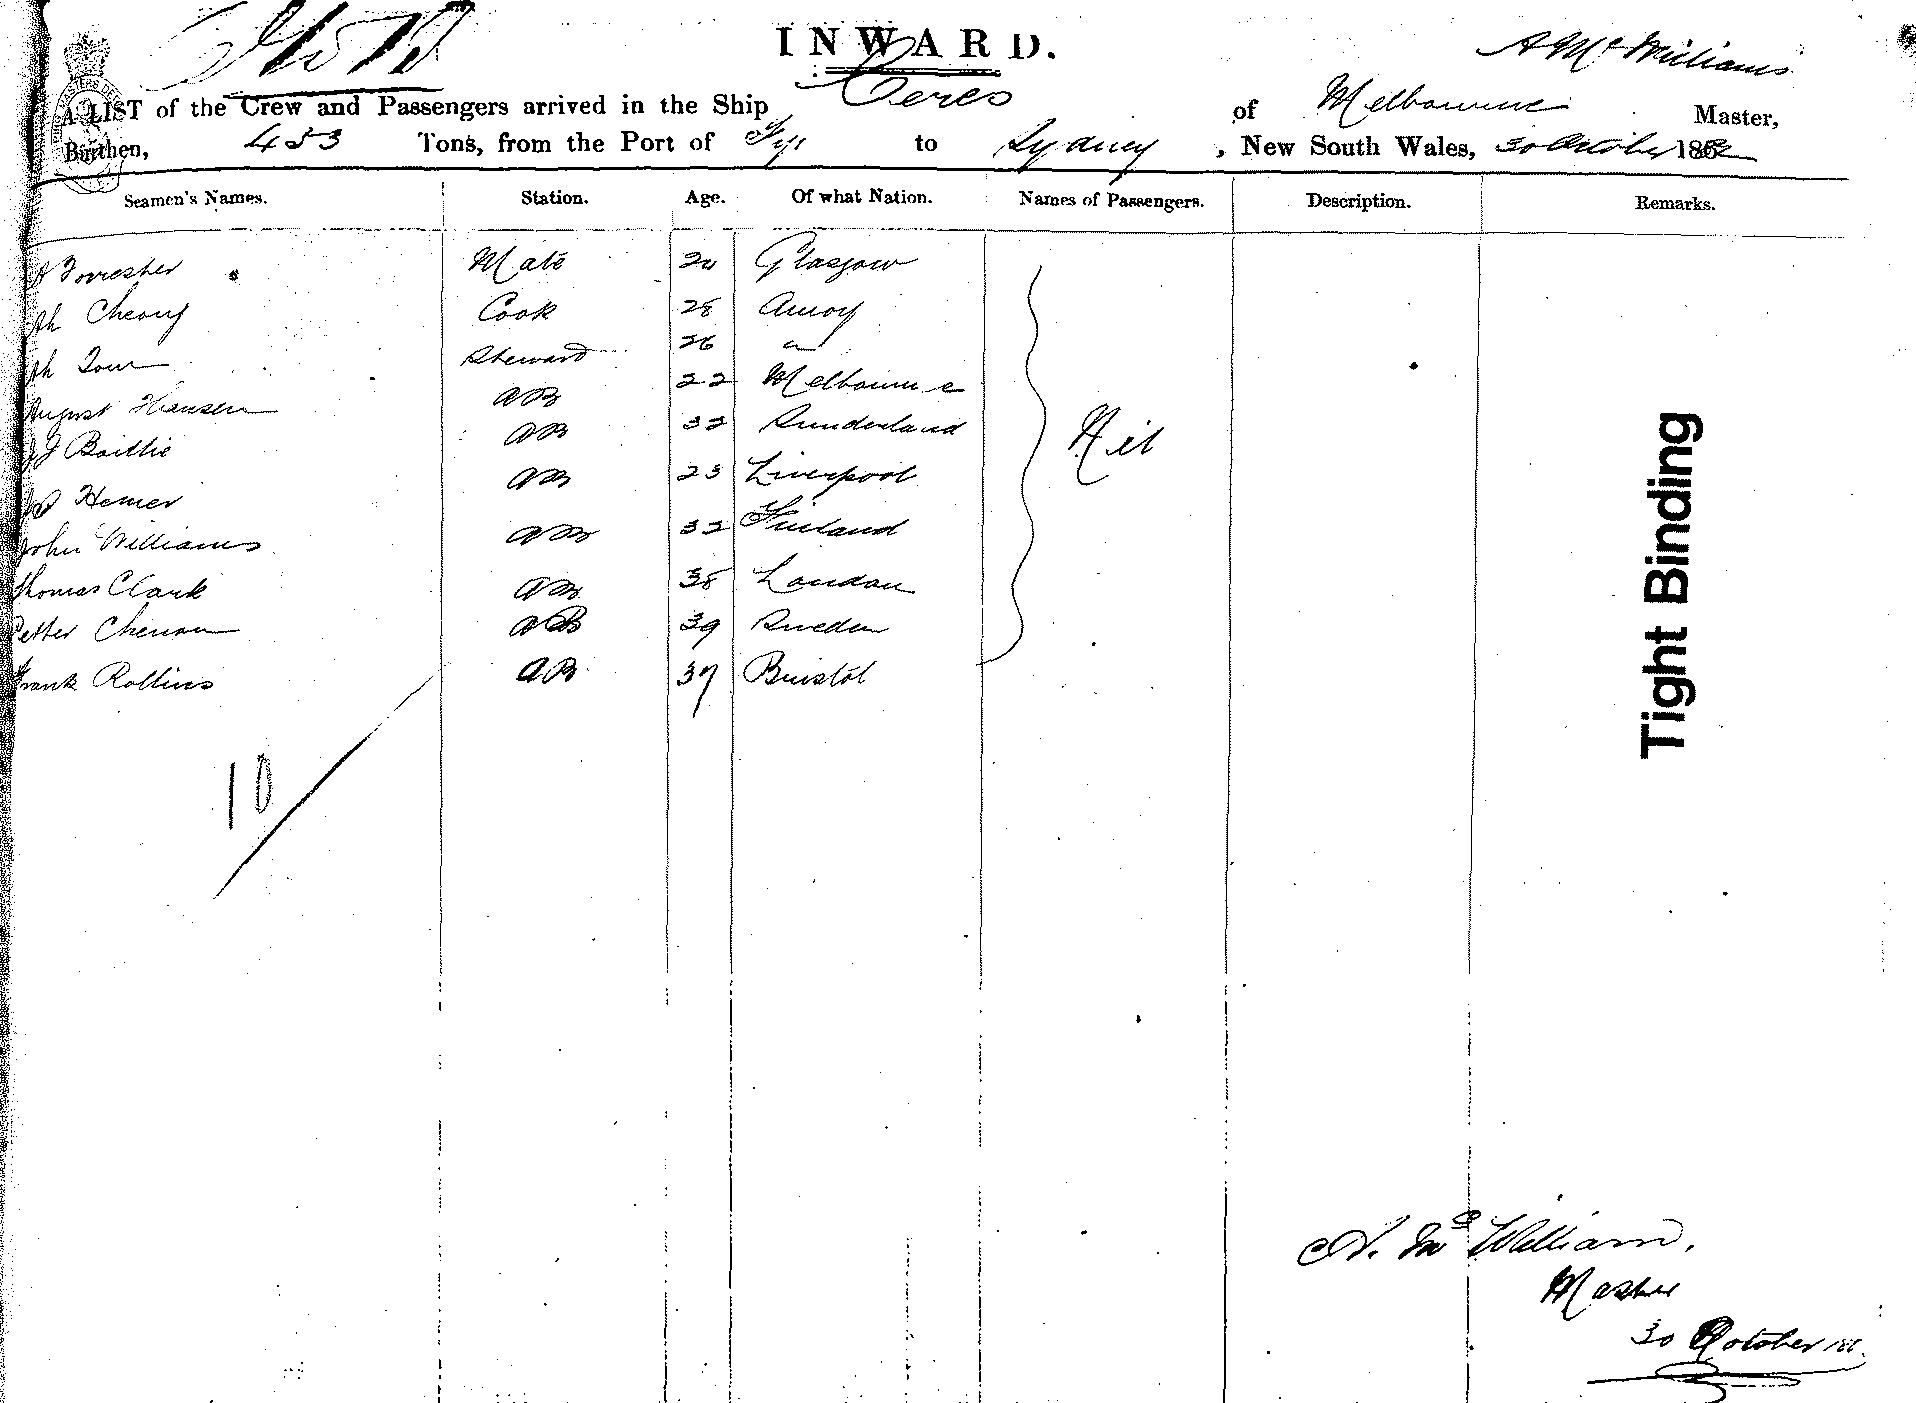 INWARD.
A McWilliams
A LIST of the Crew and Passengers arrived in the Ship Ceres of Melbourne Master,
Burthen, 453 Tons, from the Port of Fiji to Sydney, New South Wales, 30 October 188
Seamen's Names. Station. Age. Of what Nation. Names of Passengers. Description. Remarks.
A Forrester Mate Glasgow
Ah Cheong Cook 28 Amoy
Ah Steward 26 "
August Hansen AB 22 Melbourne
J Baillie AB 32 Sunderland Nil
Hemer AB 23 Liverpool
John Williams AB 32 Finland
Thomas Clark AB 38 London
Petter AB 39 Sweden
Frank Rollins AB 37 Bristol
10
Tight Binding
A. Mc William.
Master
30 October 188